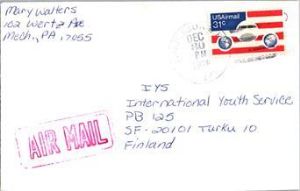 Mary Walters
102 Wertz Ave
Mech, PA 17055
USAirmail
31c
DEC
PM
AIR MAIL
IYS
International Youth Service
PB 125
SF-20101 Turku 10
Finland